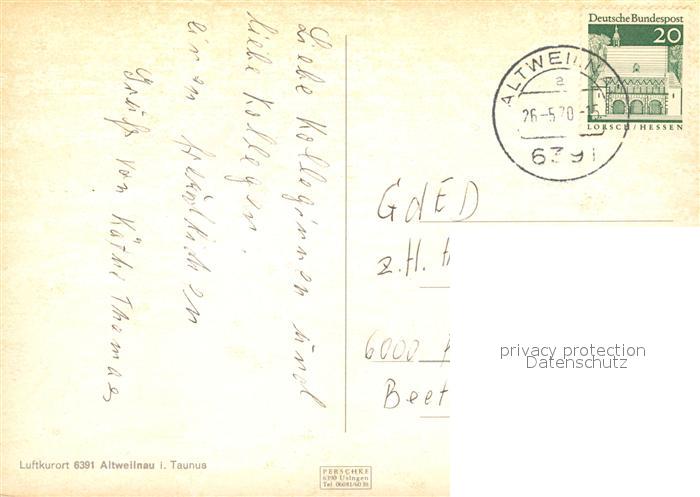 Liebe Kolleginnen und
liebe Kollegen,
einen freundlichen
Gruß von Käthe Thomas
Deutsche Bundespost
20
LORSCH/HESSEN
ALTWEILN
a
26.-5.70-15
6391
GdED
z.H. H
6000
Beet
privacy protection
Datenschutz
Luftkurort 6391 Altweilnau i. Taunus
PERSCHKE
6390 Usingen
Tel. 06081/6038